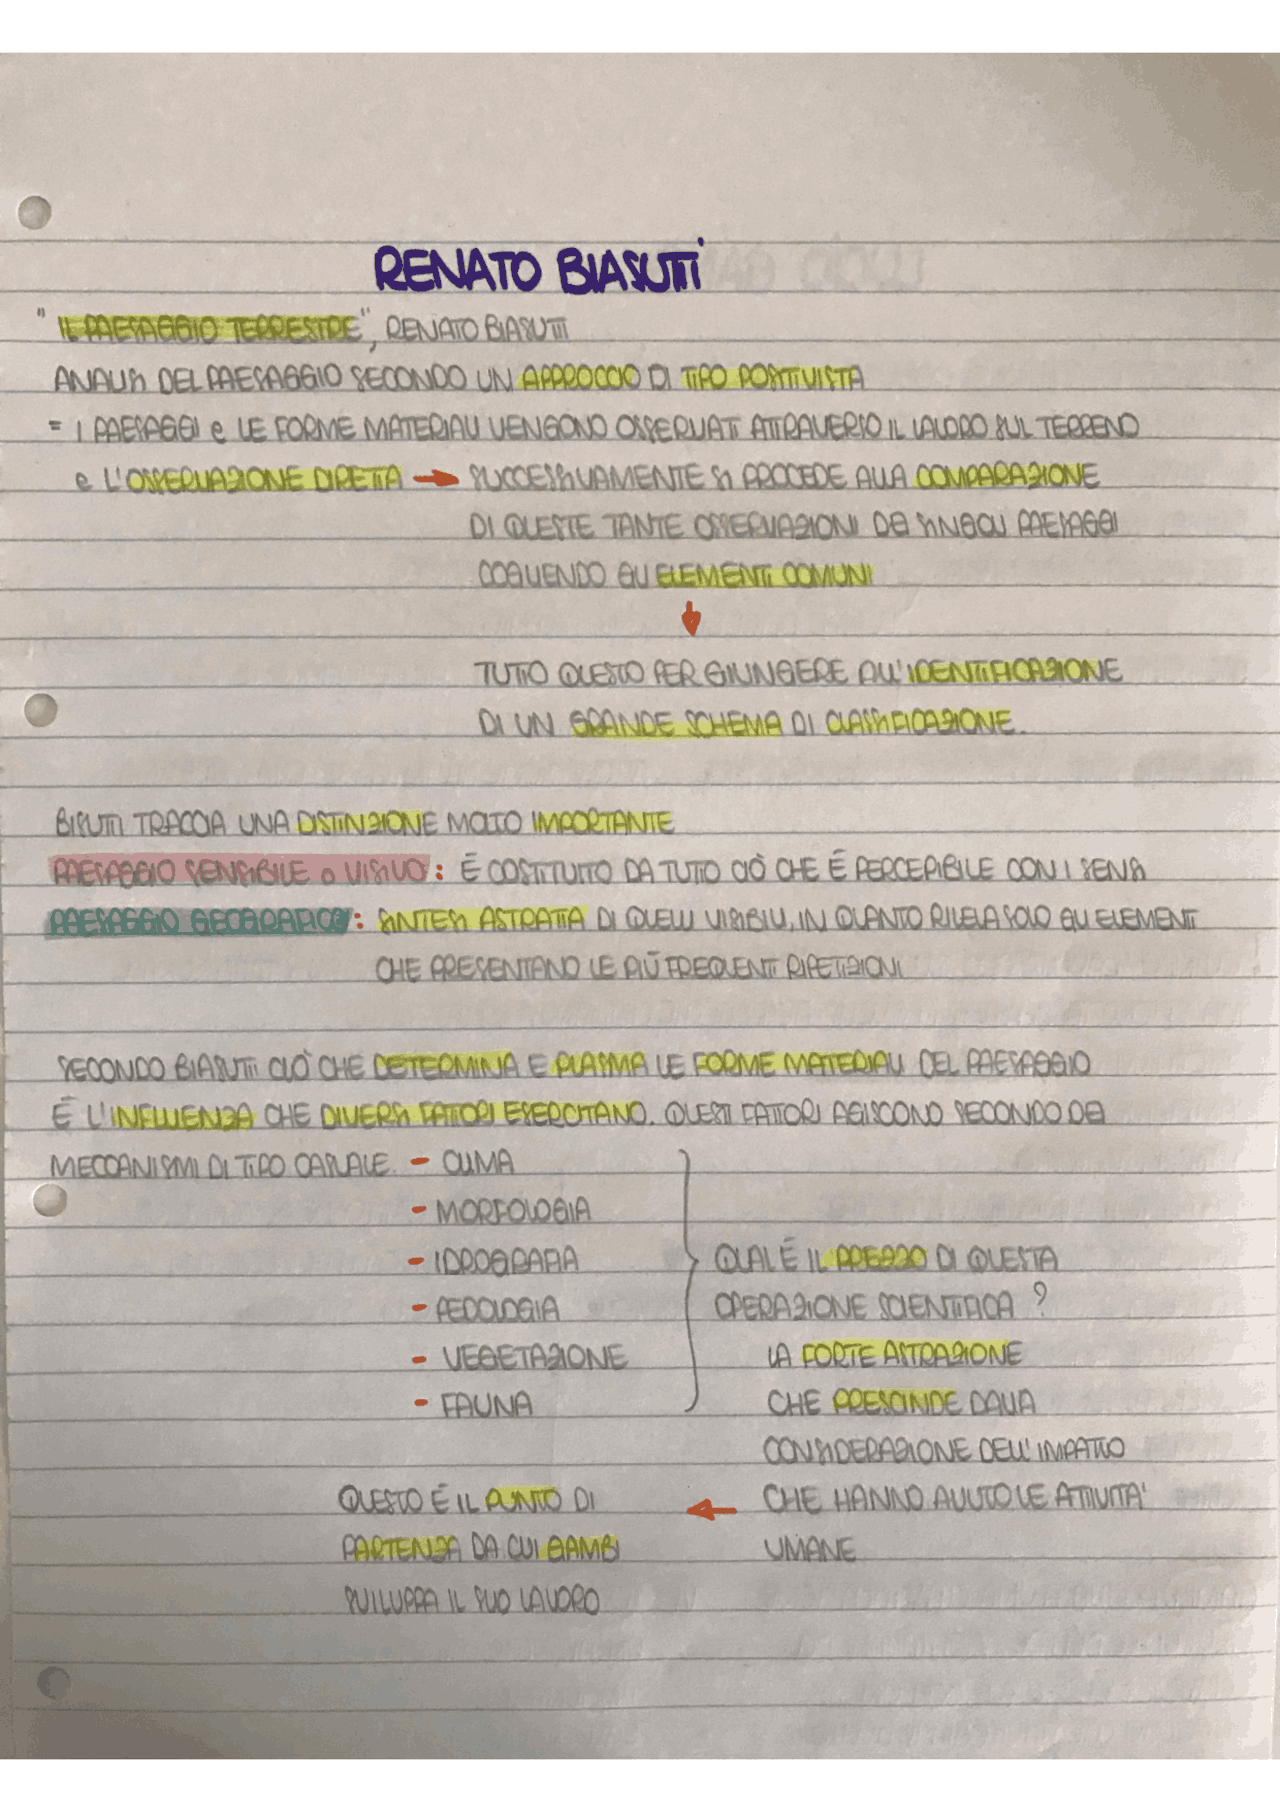 RENATO BIASUTTI
"IL PAESAGGIO TERRESTRE", RENATO BIASUTTI
ANALISI DEL PAESAGGIO SECONDO UN APPROCCIO DI TIPO POSITIVISTA
= I PAESAGGI e LE FORME MATERIALI VENGONO OSSERVATI ATTRAVERSO IL LAVORO SUL TERRENO
e L'OSSERVAZIONE DIRETTA → SUCCESSIVAMENTE SI PROCEDE ALLA COMPARAZIONE
DI QUESTE TANTE OSSERVAZIONI DEI SINGOLI PAESAGGI
COGLIENDO GLI ELEMENTI COMUNI
↓
TUTTO QUESTO PER GIUNGERE ALL'IDENTIFICAZIONE
DI UN GRANDE SCHEMA DI CLASSIFICAZIONE.
BISUTTI TRACCIA UNA DISTINZIONE MOLTO IMPORTANTE
PAESAGGIO SENSIBILE o VISIVO: É COSTITUITO DA TUTTO CIÒ CHE É PERCEPIBILE CON I SENSI
PAESAGGIO GEOGRAFICO: SINTESI ASTRATTA DI QUELLI VISIBILI, IN QUANTO RILEVA SOLO GLI ELEMENTI
CHE PRESENTANO LE PIÙ FREQUENTI RIPETIZIONI
SECONDO BIASUTTI CIÒ CHE DETERMINA E PLASMA LE FORME MATERIALI DEL PAESAGGIO
É L'INFLUENZA CHE DIVERSI FATTORI ESERCITANO. QUESTI FATTORI AGISCONO SECONDO DEI
MECCANISMI DI TIPO CASUALE. - CLIMA
- MORFOLOGIA
- IDROGRAFIA
- PEDOLOGIA
- VEGETAZIONE
- FAUNA
QUAL É IL PREZZO DI QUESTA
OPERAZIONE SCIENTIFICA ?
LA FORTE ASTRAZIONE
CHE PRESCINDE DALLA
CONSIDERAZIONE DELL'IMPATTO
CHE HANNO AVUTO LE ATTIVITA'
UMANE
← QUESTO É IL PUNTO DI
PARTENZA DA CUI GAMBI
SVILUPPA IL SUO LAVORO